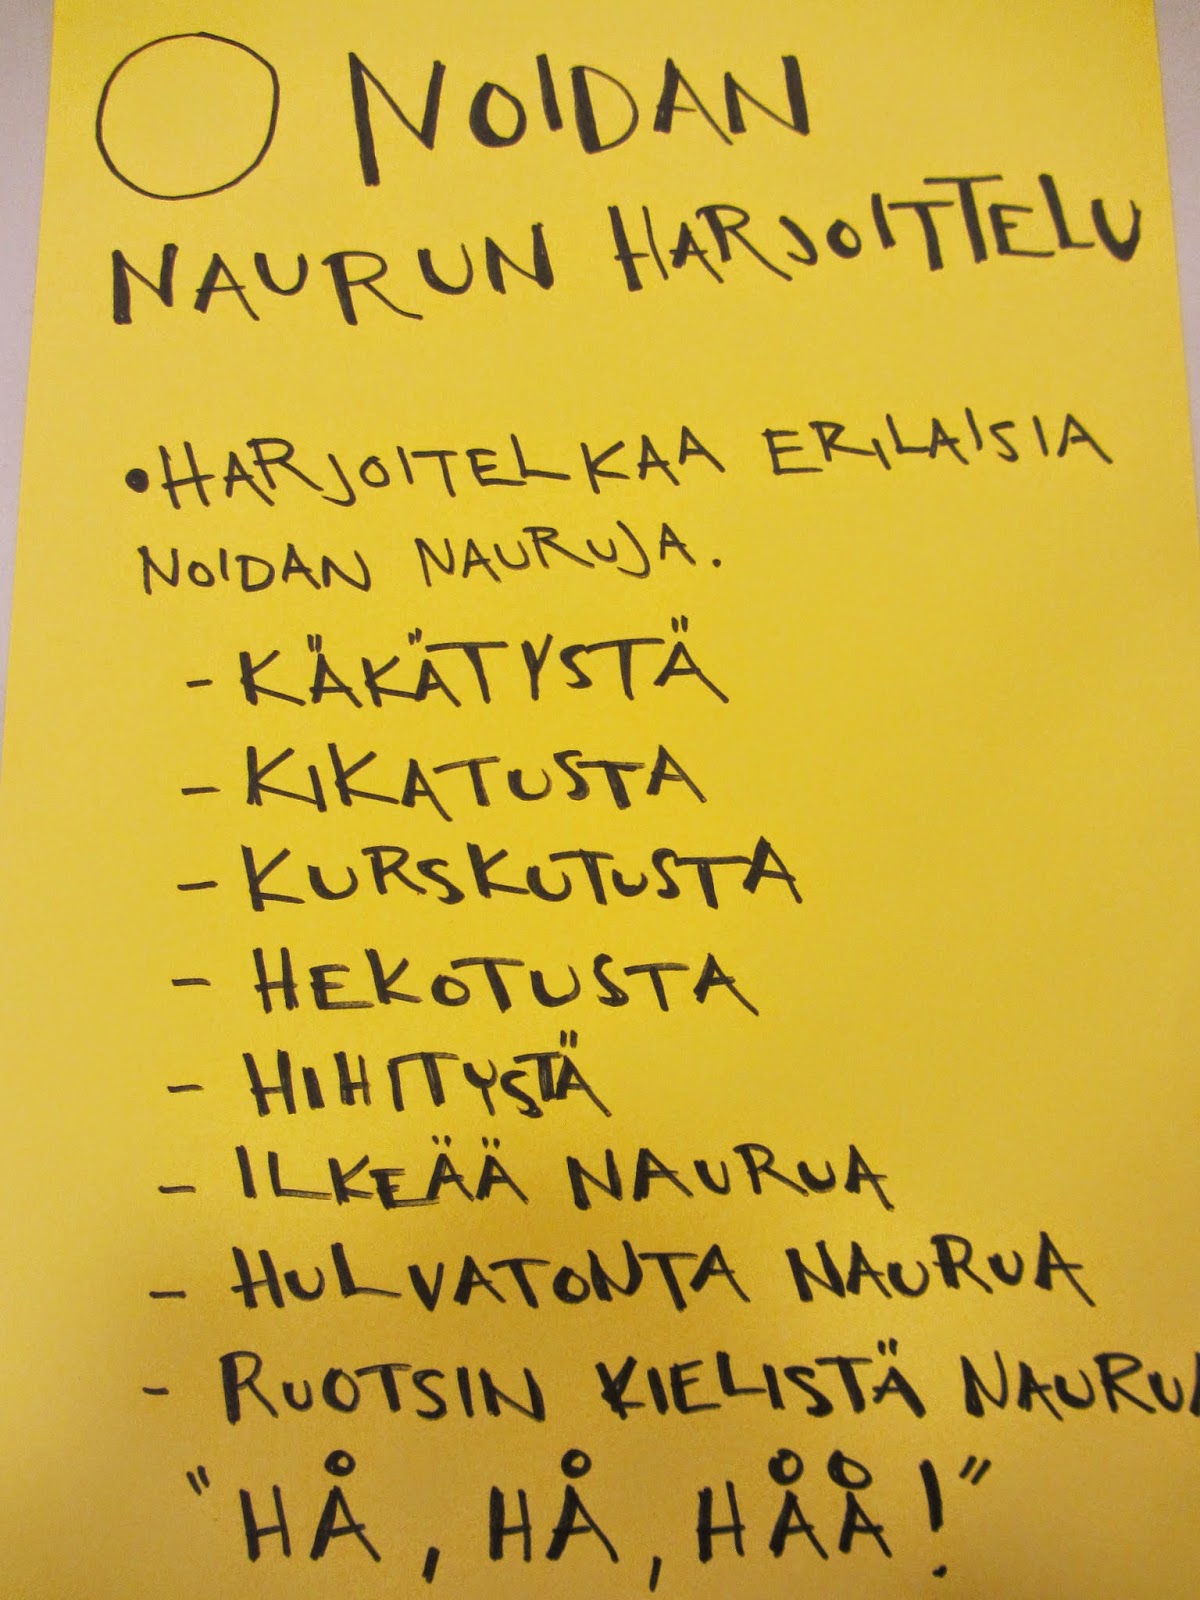 NOIDAN
NAURUN HARJOITTELU
•HARJOITELKAA ERILAISIA
NOIDAN NAURUJA.
- KÄKÄTYSTÄ
- KIKATUSTA
- KURSKUTUSTA
- HEKOTUSTA
- HIHITYSTÄ
- ILKEÄÄ NAURUA
- HULVATONTA NAURUA
- RUOTSIN KIELISTÄ NAURUA
"HÅ, HÅ, HÅÅ!"